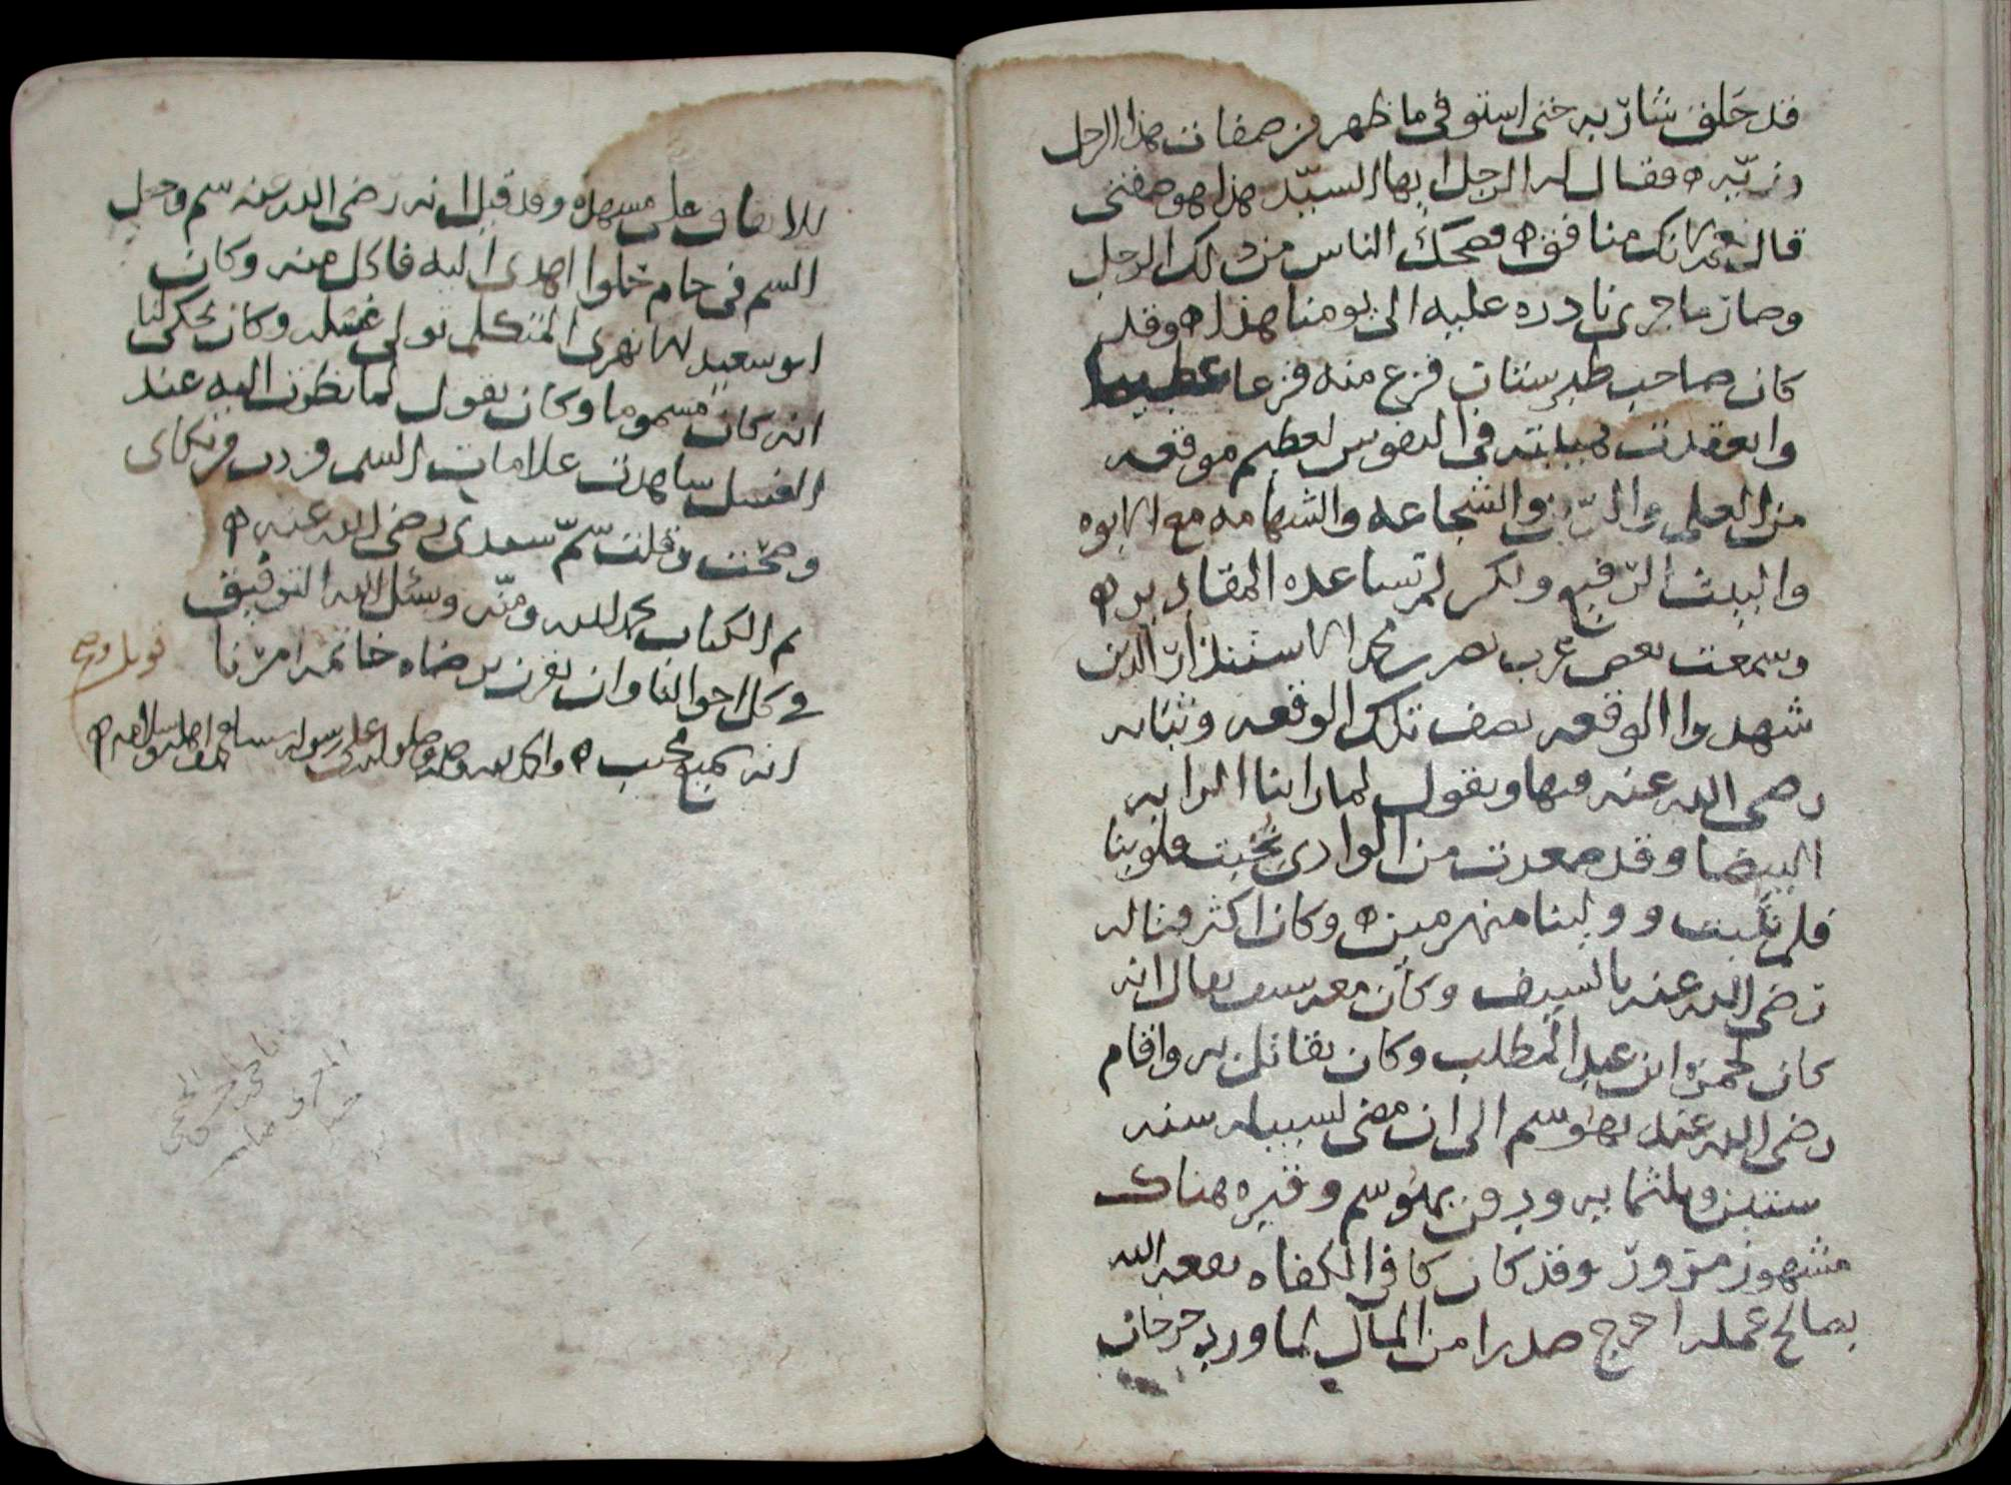 قد حلق شاربه حتى استوفى ما ظهر من صفات هذا الرجل
وزيّه ه فقال له الرجل ايها السيّد هذا هو صفتى
قال نعم الا انك منافق ه فضحك الناس من ذلك الرجل
وصار ما جرى نادره عليه الى يومنا هذا ه وقد
كان صاحب طبرستان فزع منه فزعا عظيما
وانعقدت هيبته فى النفوس لعظيم موقعه
من العلم والدّين والشجاعه والشهامه مع الابوه
والبيت الرّفيع ولكن لم تساعده المقادير ه
وسمعت بعض عرب نصر بن محمد الاستندار الذين
شهدوا الوقعه يصف تلك الوقعه وثباته
رضى الله عنه فيها ويقول لما راينا الرايه
البيضا وقد صعدت من الوادى نخبت قلوبنا
فلم نلبث وولينا منهزمين ه وكان اكثر قتاله
رضى الله عنه بالسيف وكان معه سيف يقال انه
كان لحمزه ابن عبد المطلب وكان يقاتل به واقام
رضى الله عنه بهوسم الى ان مضى لسبيله سنه
ستين وثلثمايه ودفن بهوسم وقبره هناك
مشهور مزور وقد كان كافى الكفاه نفعه الله
بصالح عمله اخرج صدرا من المال لما ورد جرجان
للانفاق على مشهده وقد قيل انه رضى الله عنه سم وجعل
السم فى جام حلوا اهدى اليه فاكل منه وكان
ابو سعيد الابهرى المتكلم تولى غسله وكان يحكى لنا
انه كان مسموما وكان يقول لما نظرت اليه عند
الغسل شاهدت علامات السم فزدت فى بكاى
وصحت وقلت سمّ سيدى رضى الله عنه ه
تم الكتاب بحمد الله ومنّه ونسئل الله التوفيق
فى كل احوالنا وان يقرن برضاه خاتمه امرنا
انه سميع مجيب ه والحمد لله وحده وصلواته على رسوله سيدنا محمد واهله وسلامه ه
قوبل وصح